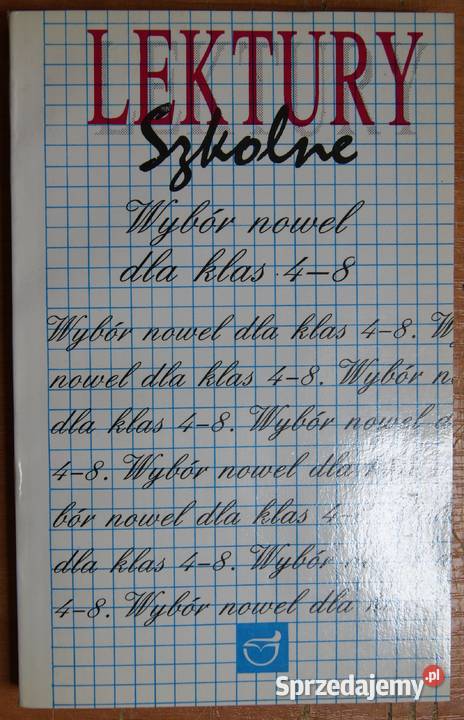 LEKTURY
Szkolne
Wybór nowel
dla klas 4-8
Wybór nowel dla klas 4-8. W
nowel dla klas 4-8. Wybór n
dla klas 4-8. Wybór nowel d
4-8. Wybór nowel dla
bór nowel dla klas 4-
dla klas 4-8. Wybór
4-8. Wybór nowel dla
Sprzedajemy.pl